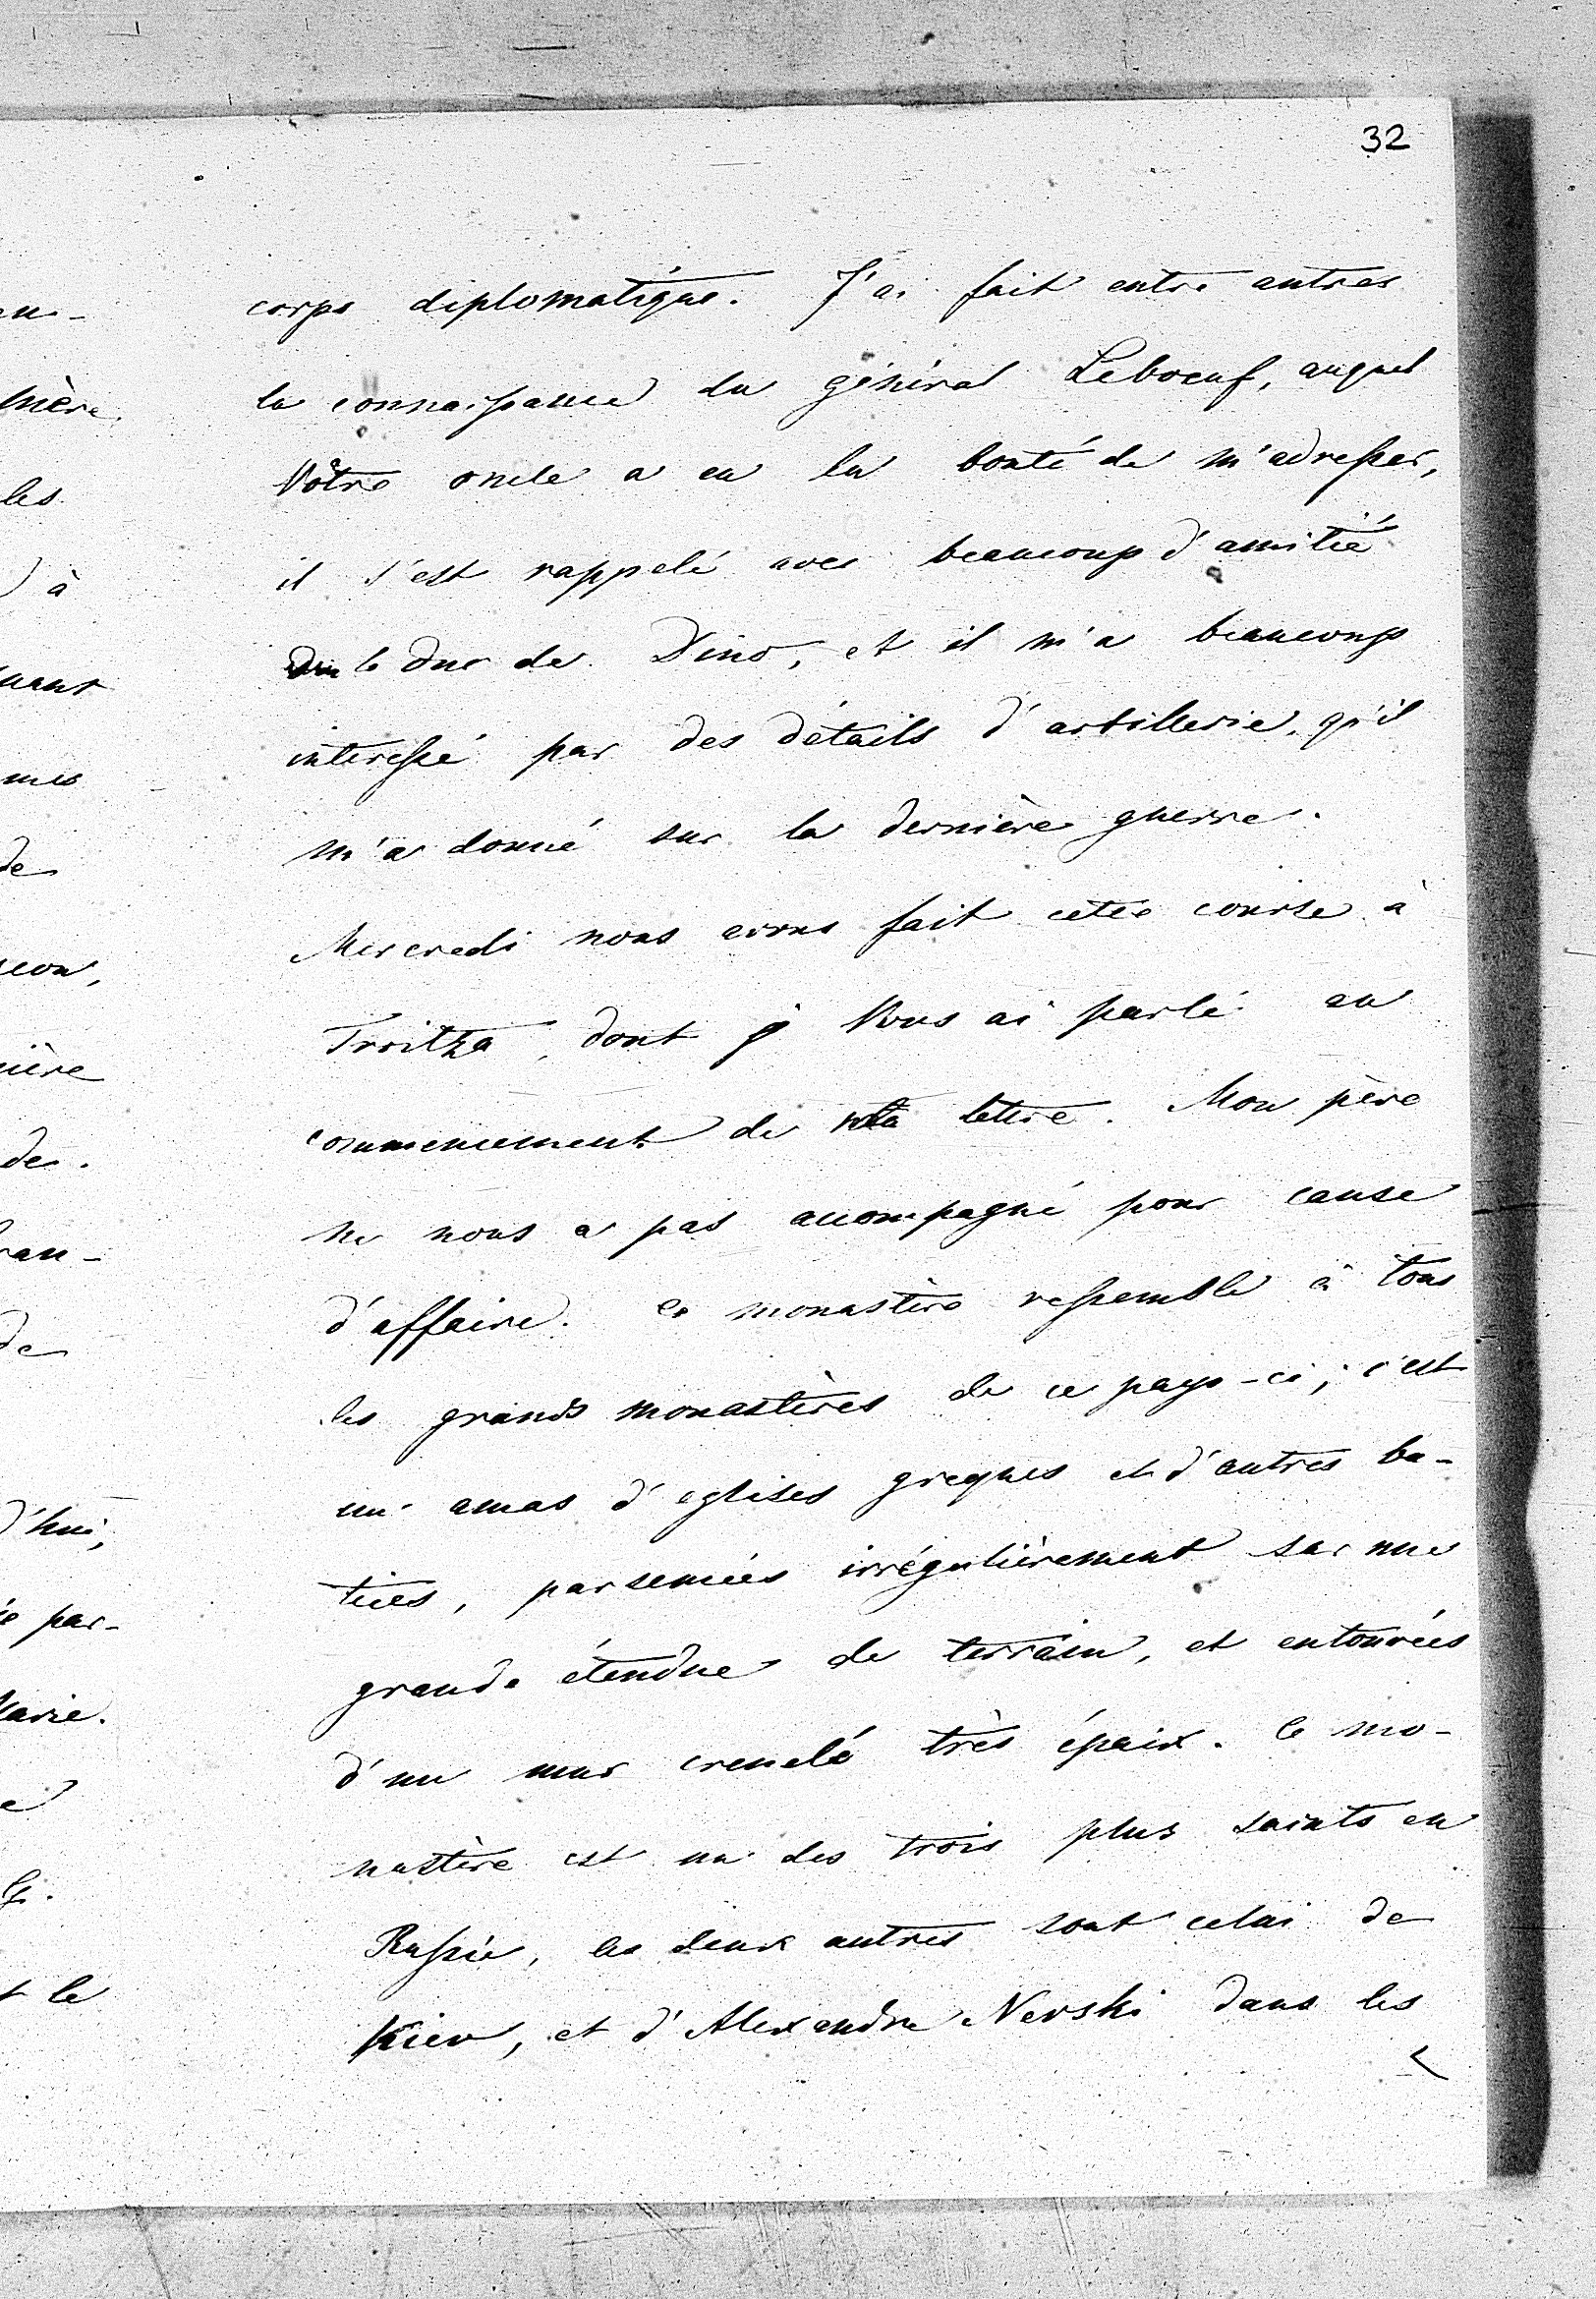 32
corps diplomatique. J'ai fait entre autres
la connaissance du général Leboeuf, auquel
Vôtre oncle a eu la bonté de m'adresser,
il s'est rappelé avec beaucoup d'amitié
le duc de Dino, et il m'a beaucoup
interessé par des détails d'artillerie, qu'il
m'a donné sur la dernière guerre.
Mercredi nous avons fait cette course à
Troitza, dont j Vous ai parlé au
commencement de ma lettre. Mon père
ne nous a pas accompagné pour cause
d'affaire. Ce monastère ressemble à tous
les grands monastères de ce pays-ci; c'est
un amas d'eglises greques et d'autres ba-
tices, parsemées irrégulièrement sur une
grande étendue de terrain, et entourées
d'un mur crenelé très épaix. Ce mo-
nastère est un des trois plus saints en
Russie, les deux autres sont celui de
Kiew, et d'Alexandre Nevski dans les